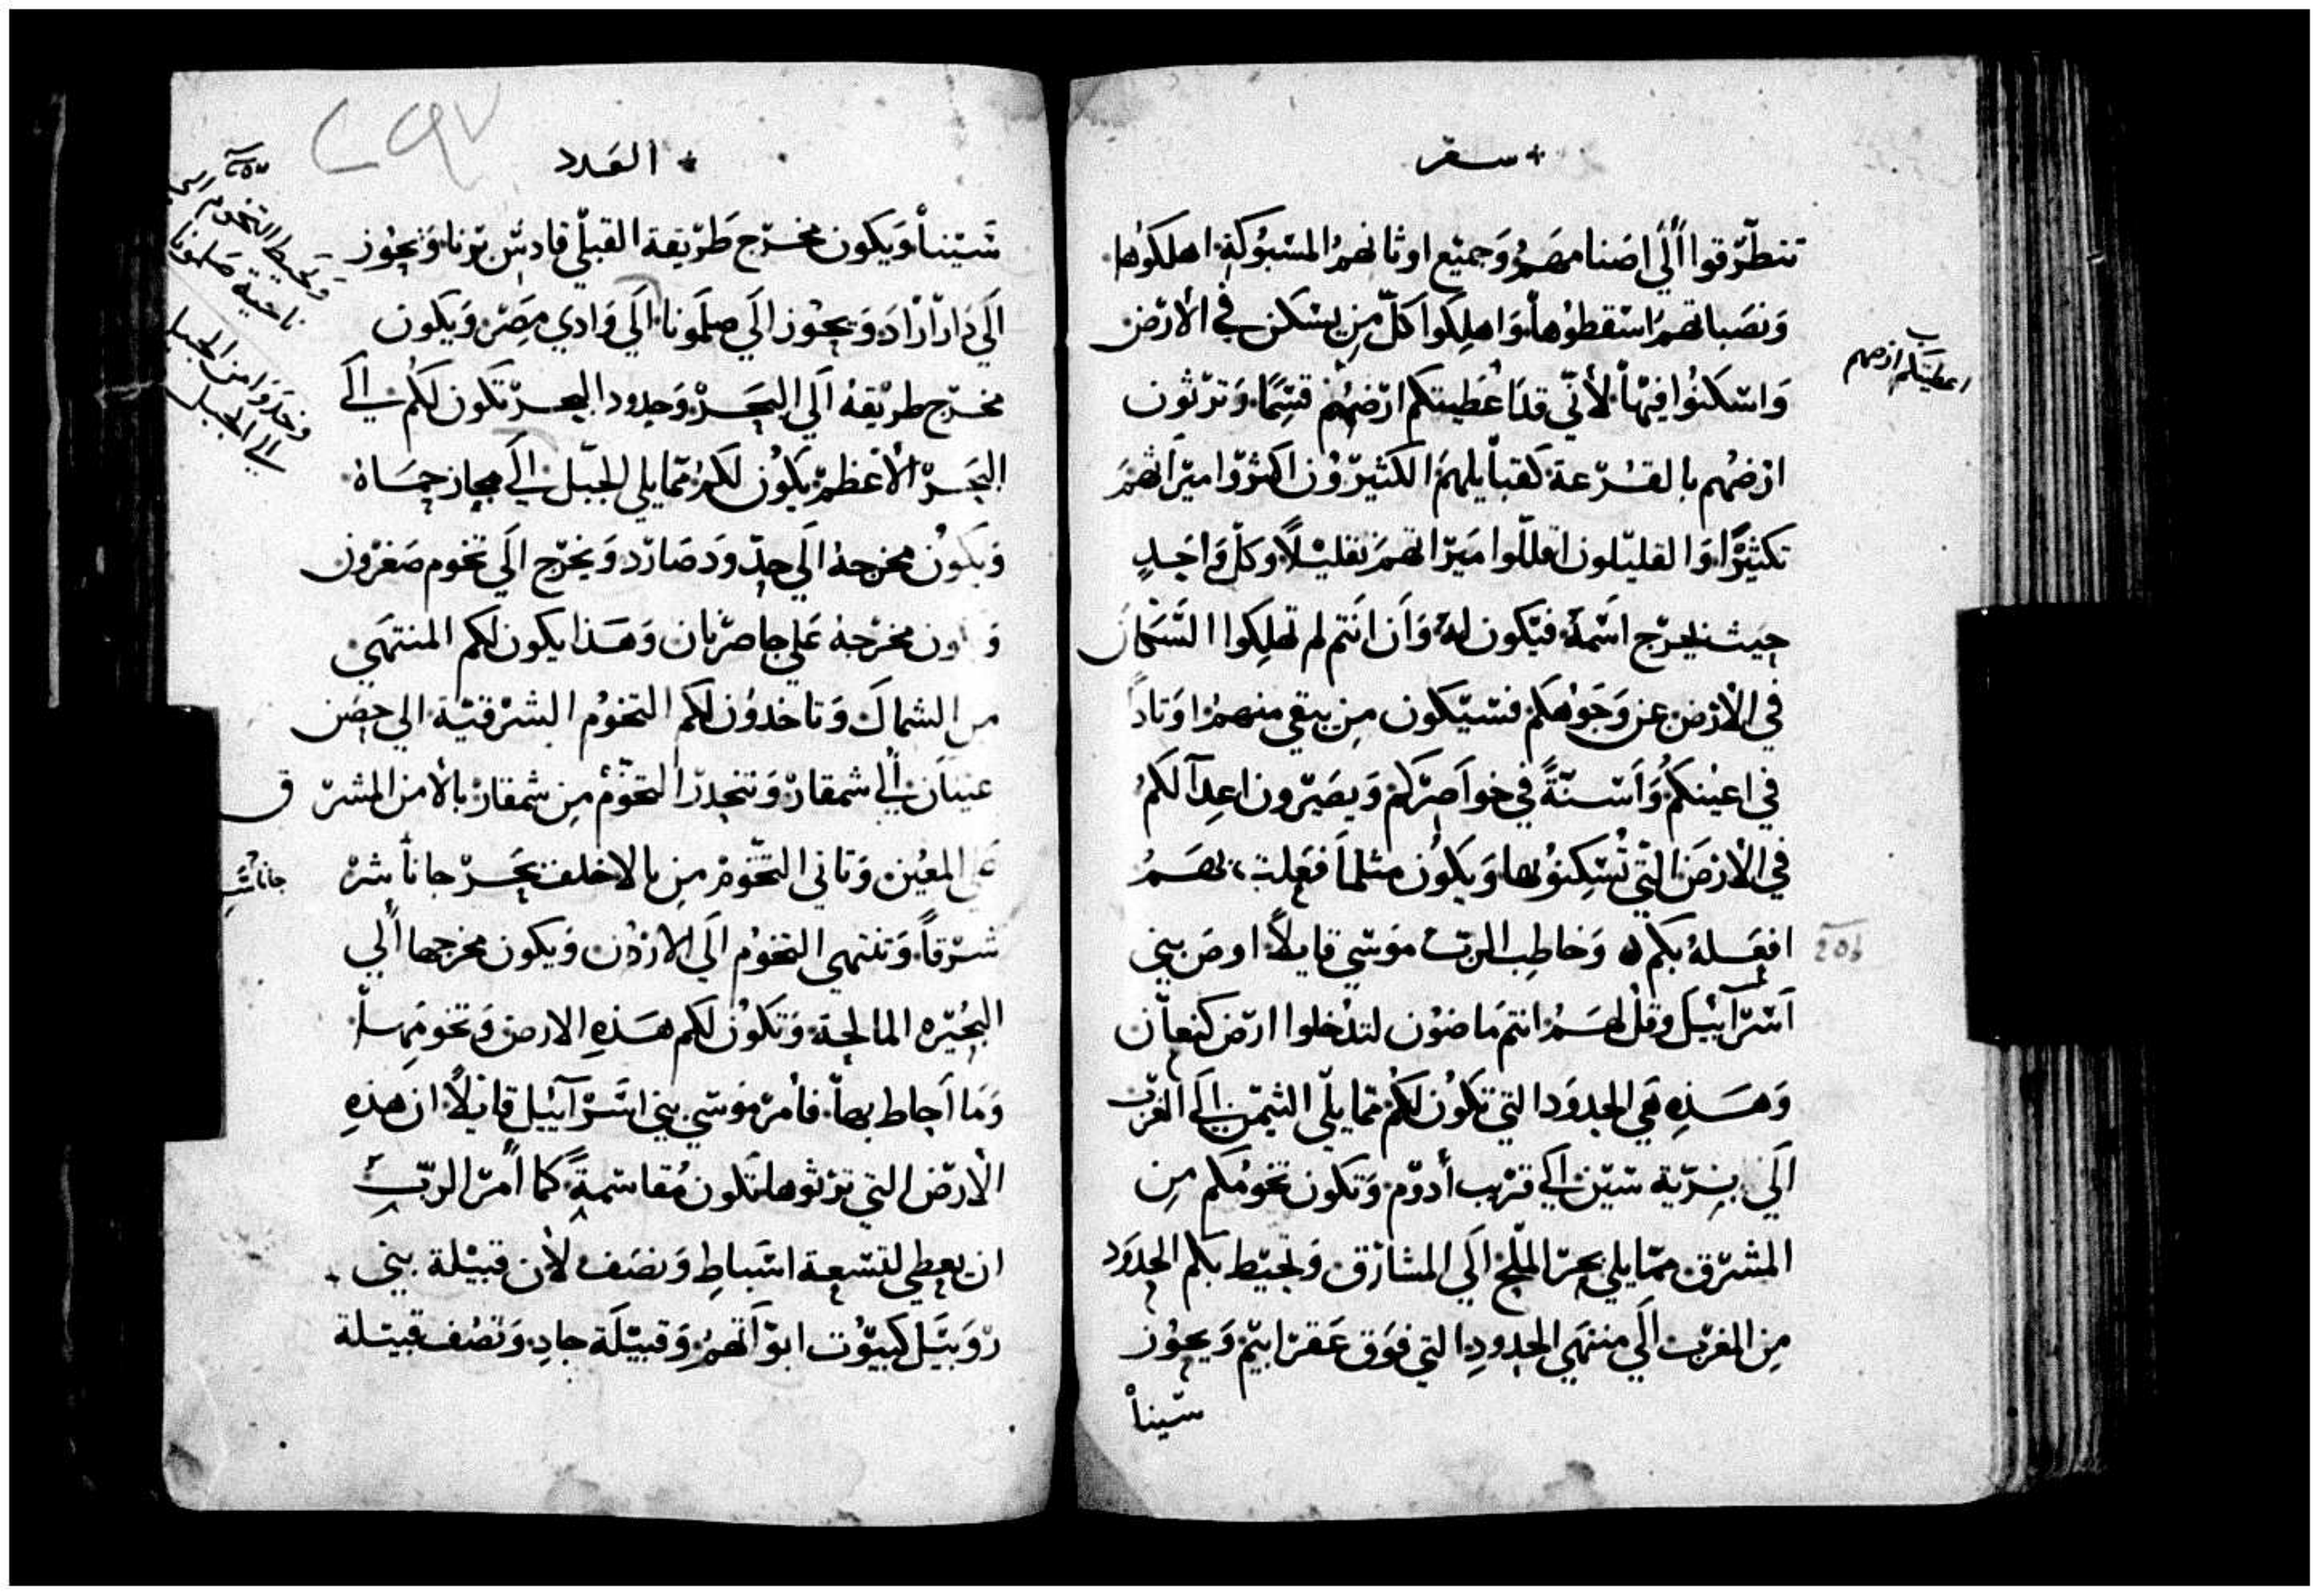 + سفر
تتطرقوا الي اصنامهم وجميع اوثانهم المسبوكة اهلكوها
ونصباتهم اسقطوها واهلكوا كل من يسكن في الارض
واسكنوا فيها لاني قد اعطيتكم ارضهم قسما وترثون
ارضهم بالقرعة كقبايلهم الكثيرون اكثروا ميراثهم
تكثيرا والقليلون اقللوا ميراثهم تقليلا وكل واحد
حيث يخرج اسمه فيكون له وان انتم لم تهلكوا السكان
في الارض عن وجوهكم فسيكون من يبقي منهم اوتادا
في اعينكم واسنة في خواصركم ويصيرون اعدآ لكم
في الارض التي تسكنوها ويكون مثلما فعلت بهم
افعله بكم وخاطب الرب موسي قايلا اوص بني
اسرآييل وقل لهم انتم ماضون لتدخلوا ارض كنعان
وهذه هي الحدود التي تكون لكم مما يلي التيمن الي الغرب
الي برية سين الي قرب أدوم وتكون تخومكم من
المشرق مما يلي بحر الملح الي المشارق وتحيط بكم الحدود
من المغرب الي منتهي الحدود التي فوق عقرابيم ويجوز
سينا
اعطيتكم ارضهم
206
+ العدد
٢٩٧
سينا ويكون مخرج طريقة القبلي قادس برنا ويجوز
الي داراراد ويجوز الي صلمونا الي وادي مصر ويكون
مخرج طريقه الي البحر وحدود البحر تكون لكم الي
البحر الاعظم يكون لكم مما يلي الجبل الي مجاز حماه
ويكون مخرجه الي حدود صارد ويخرج الي تخوم صغرون
مخرجه علي حاصربان وهذا يكون لكم المنتهي
من الشمال وتاخدون لكم التخوم الشرقية الي حصن
عينان الي شمقار وتنحدر التخوم من شمقار بالا من المشرق
علي المعين وتاتي التخوم من بالا خلف بحر حاناشر
شرقا وتنتهي التخوم الي الاردن ويكون مخرجها ألي
البحيره المالحة وتكون لكم هذه الارض وتخومها
وما احاط بها فامر موسي بني اسرآييل قايلا ان هذه
الارض التي ترثوها تكون مقاسمة كما امر الرب
ان يعطي لتسعة اسباط ونصف لان قبيلة بني
روبيل كبيوت ابواتهم وقبيلة جاد ونصف قبيلة
ناحية صلمونا
وخدوا من الجبل
الي الجبل